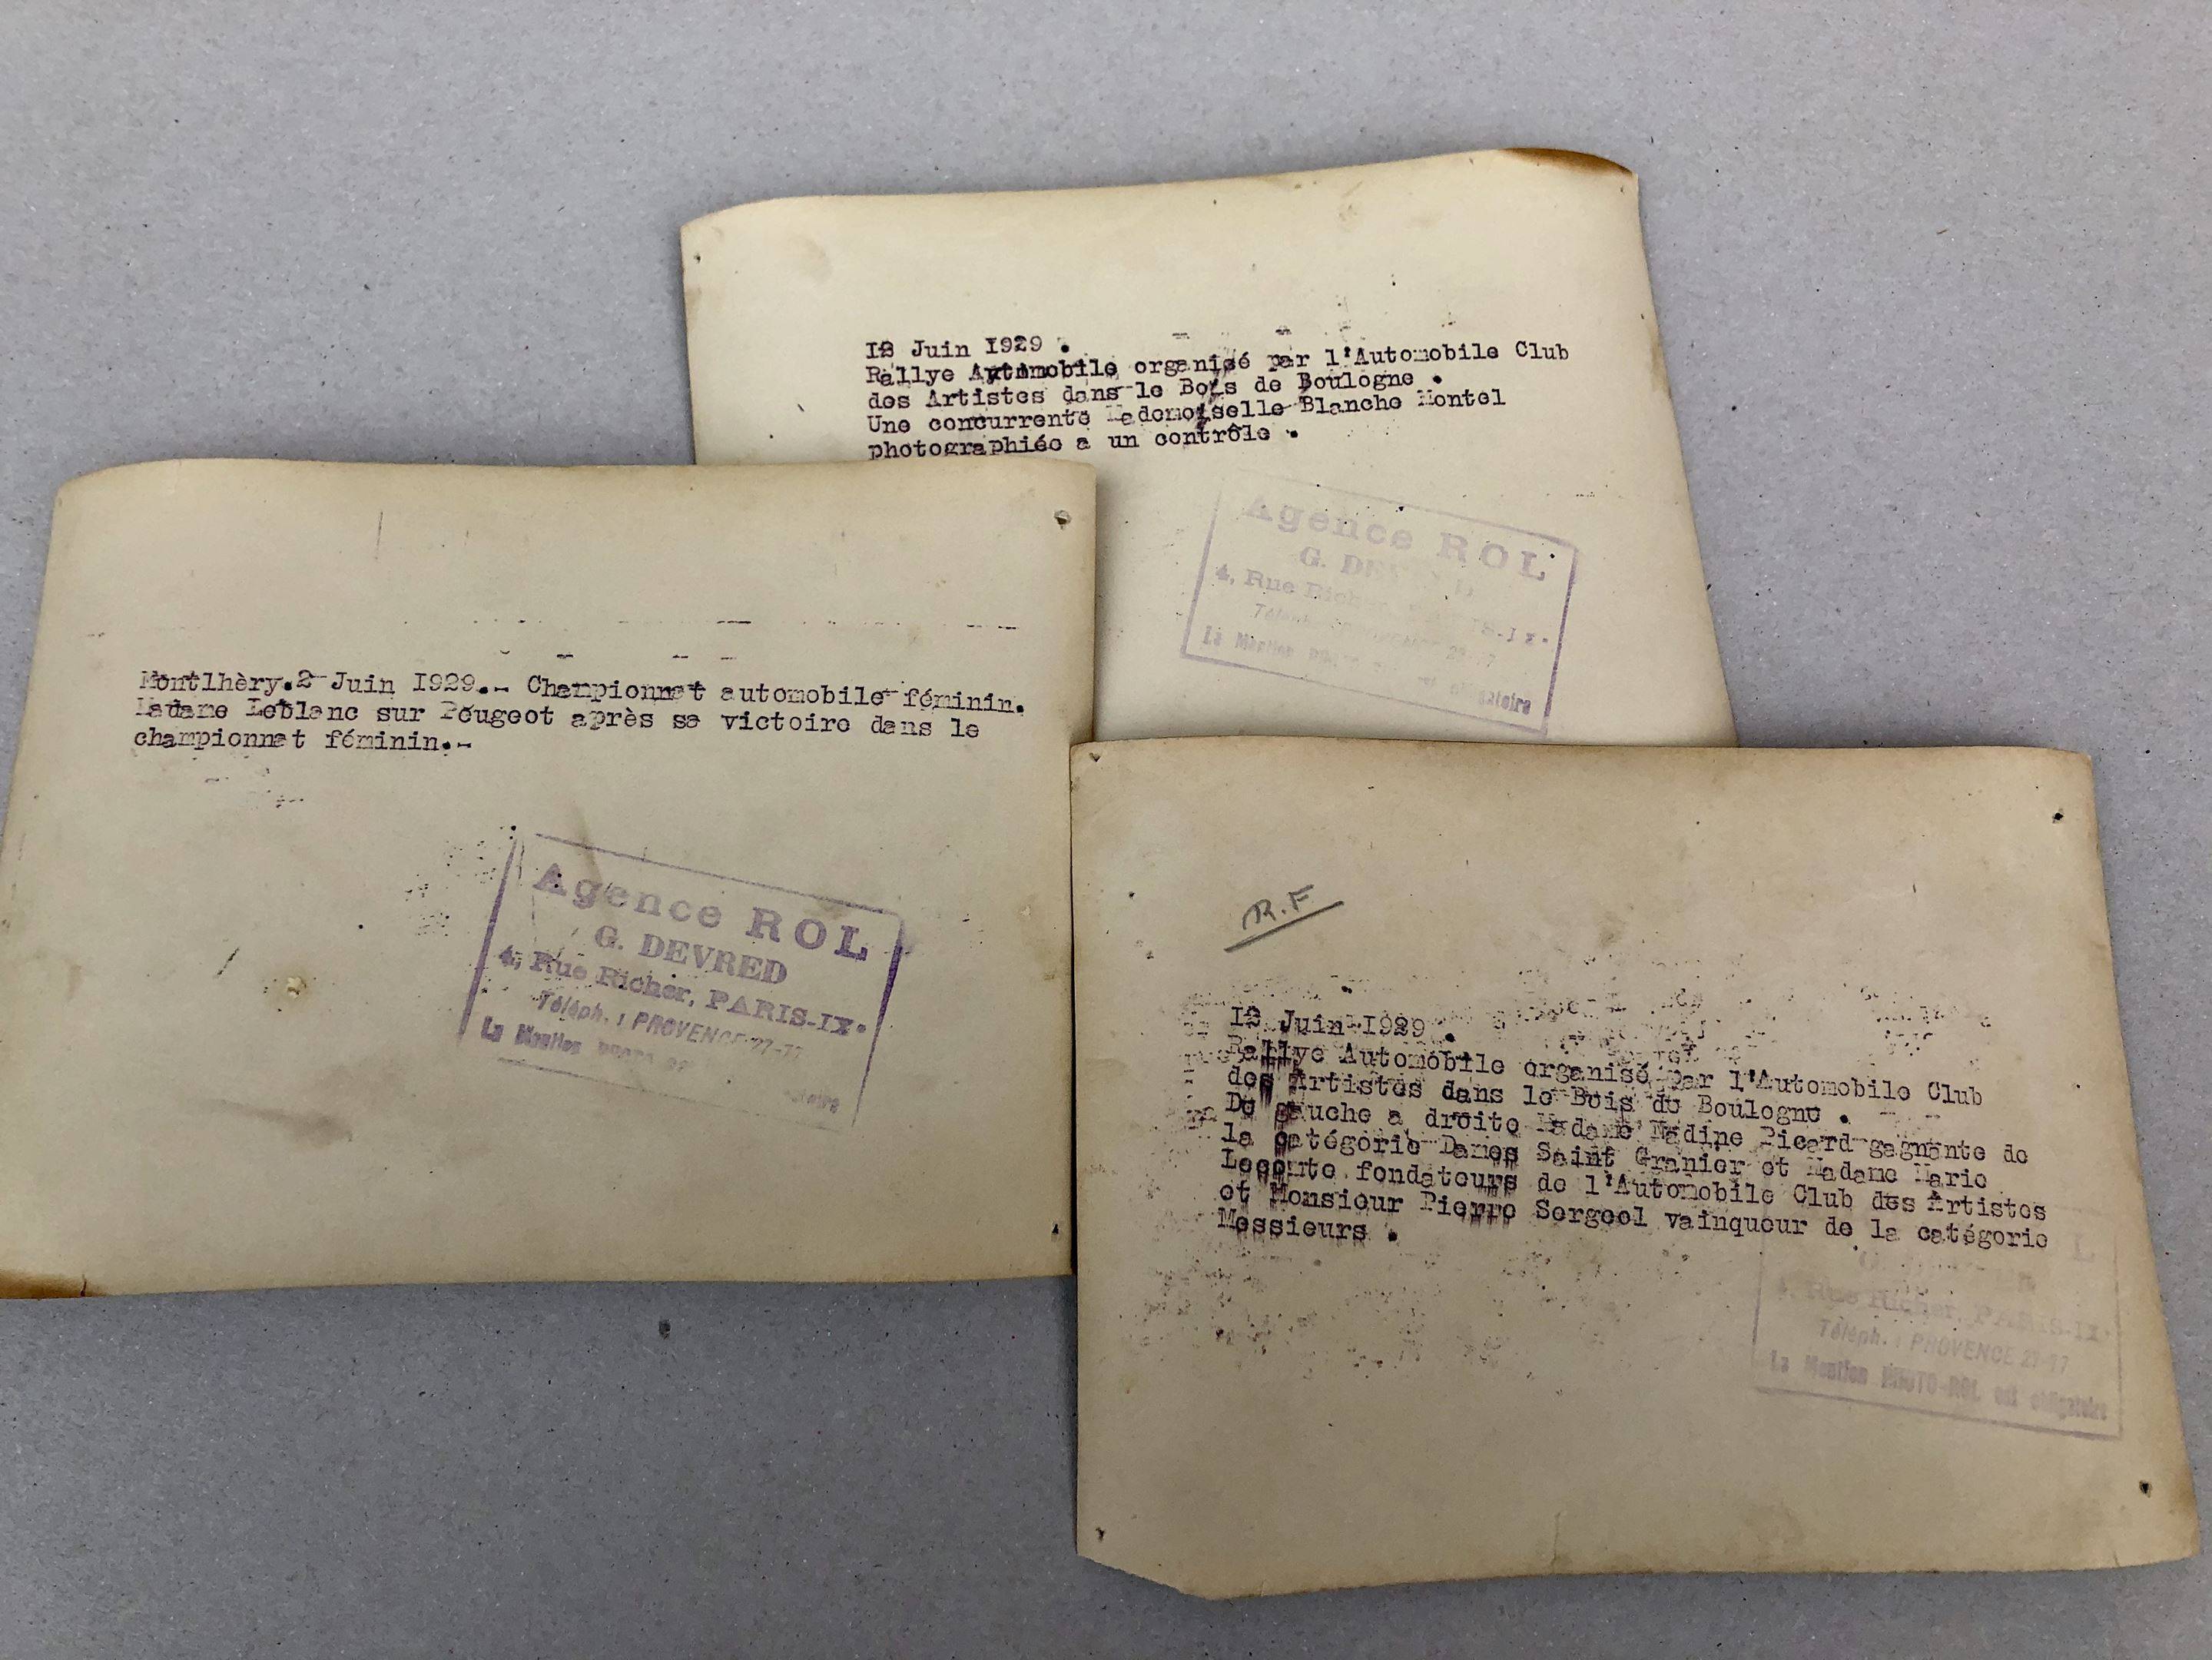 Juin 1929 .
Rallye Automobile organisé par l'Automobile Club
des Artistes dans le Bois de Boulogne .
Une concurrente Mademoiselle Blanche Montel
photographiée a un contrôle .
Agence ROL
G.
4, Rue
La Mention
Montlhèry.2 Juin 1929.- Championnat automobile féminin.
Madame Leblanc sur Peugeot après sa victoire dans le
championnat féminin.-
Agence ROL
G. DEVRED
4, Rue Richer, PARIS-IXe
Téléph. : PROVENCE
La Mention
R.F
Juin 1929 .
Rallye Automobile organisé par l'Automobile Club
des Artistes dans le Bois de Boulogne .
De gauche a droite Madame Nadine Picard gagnante de
la catégorie Dames Saint Granier et Madame Marie
Lecomte fondateurs de l'Automobile Club des Artistes
et Monsieur Pierre Sergeol vainqueur de la catégorie
Messieurs .
4, Rue Richer, PARIS-IXe
Téléph. : PROVENCE
La Mention PHOTO-ROL est obligatoire